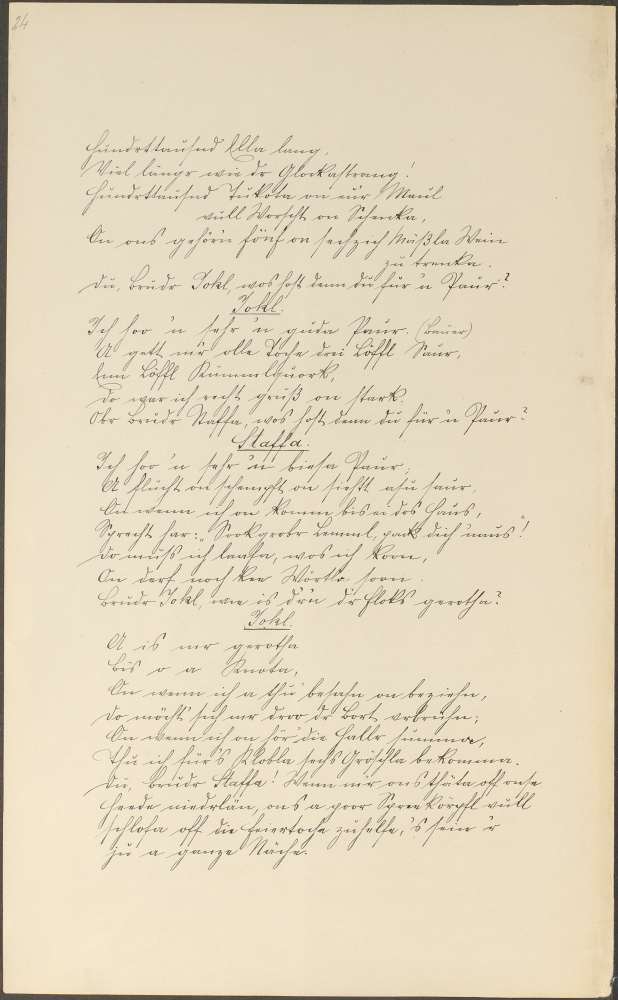 24
Hundrttausnd Ella lang,
Viel längr wie dr Glockastrang!
Hundrttausnd Tukota on nur Maul
vull Worscht on Schenka,
On ons gehörn fönf on sechzich Mäßla Wein
zu trenka.
Du, Brudr Jokl, wos host denn du für 'n Paur?
Jokl.
Ich hoo 'n sehr 'n guda Paur. (Bauer)
A gett mr olle Toche drei Löffl Saur,
Enn Löffl Kümmlquork,
Do war ich recht gruß on stark.
Obr Brudr Staffa, wos host denn du für 'n Paur?
Staffa.
Ich hoo 'n sehr 'n biesa Paur;
A flucht on schempft on sieht asu saur,
On wenn ich on komm bis ei dos Haus,
Sprecht har: „Sookgrobr Lemml, pack dich 'naus"!
Do muss ich laafa, wos ich koon,
On derf noch ken Wörtla soon.
Brudr Jokl, wie is dr'n dr Floks gerotha?
Jokl.
A is mr gerotha
bis o a Knota,
On wenn ich a thu' besahn on beziehn,
Do möcht' sich mr droo dr Bort vrbrühn;
On wenn ich on hör' die Hallr summa,
Thu ich für's Klobla sechs Gröschla bekomma.
Du, Brudr Staffa! Wenn mr ons thäta off onse
Heede niederlän, ons a poor Spreekörpfl vull
schlofa off die Feiertoche zuhalfe, 's sein 'r
ju a ganze Nache.